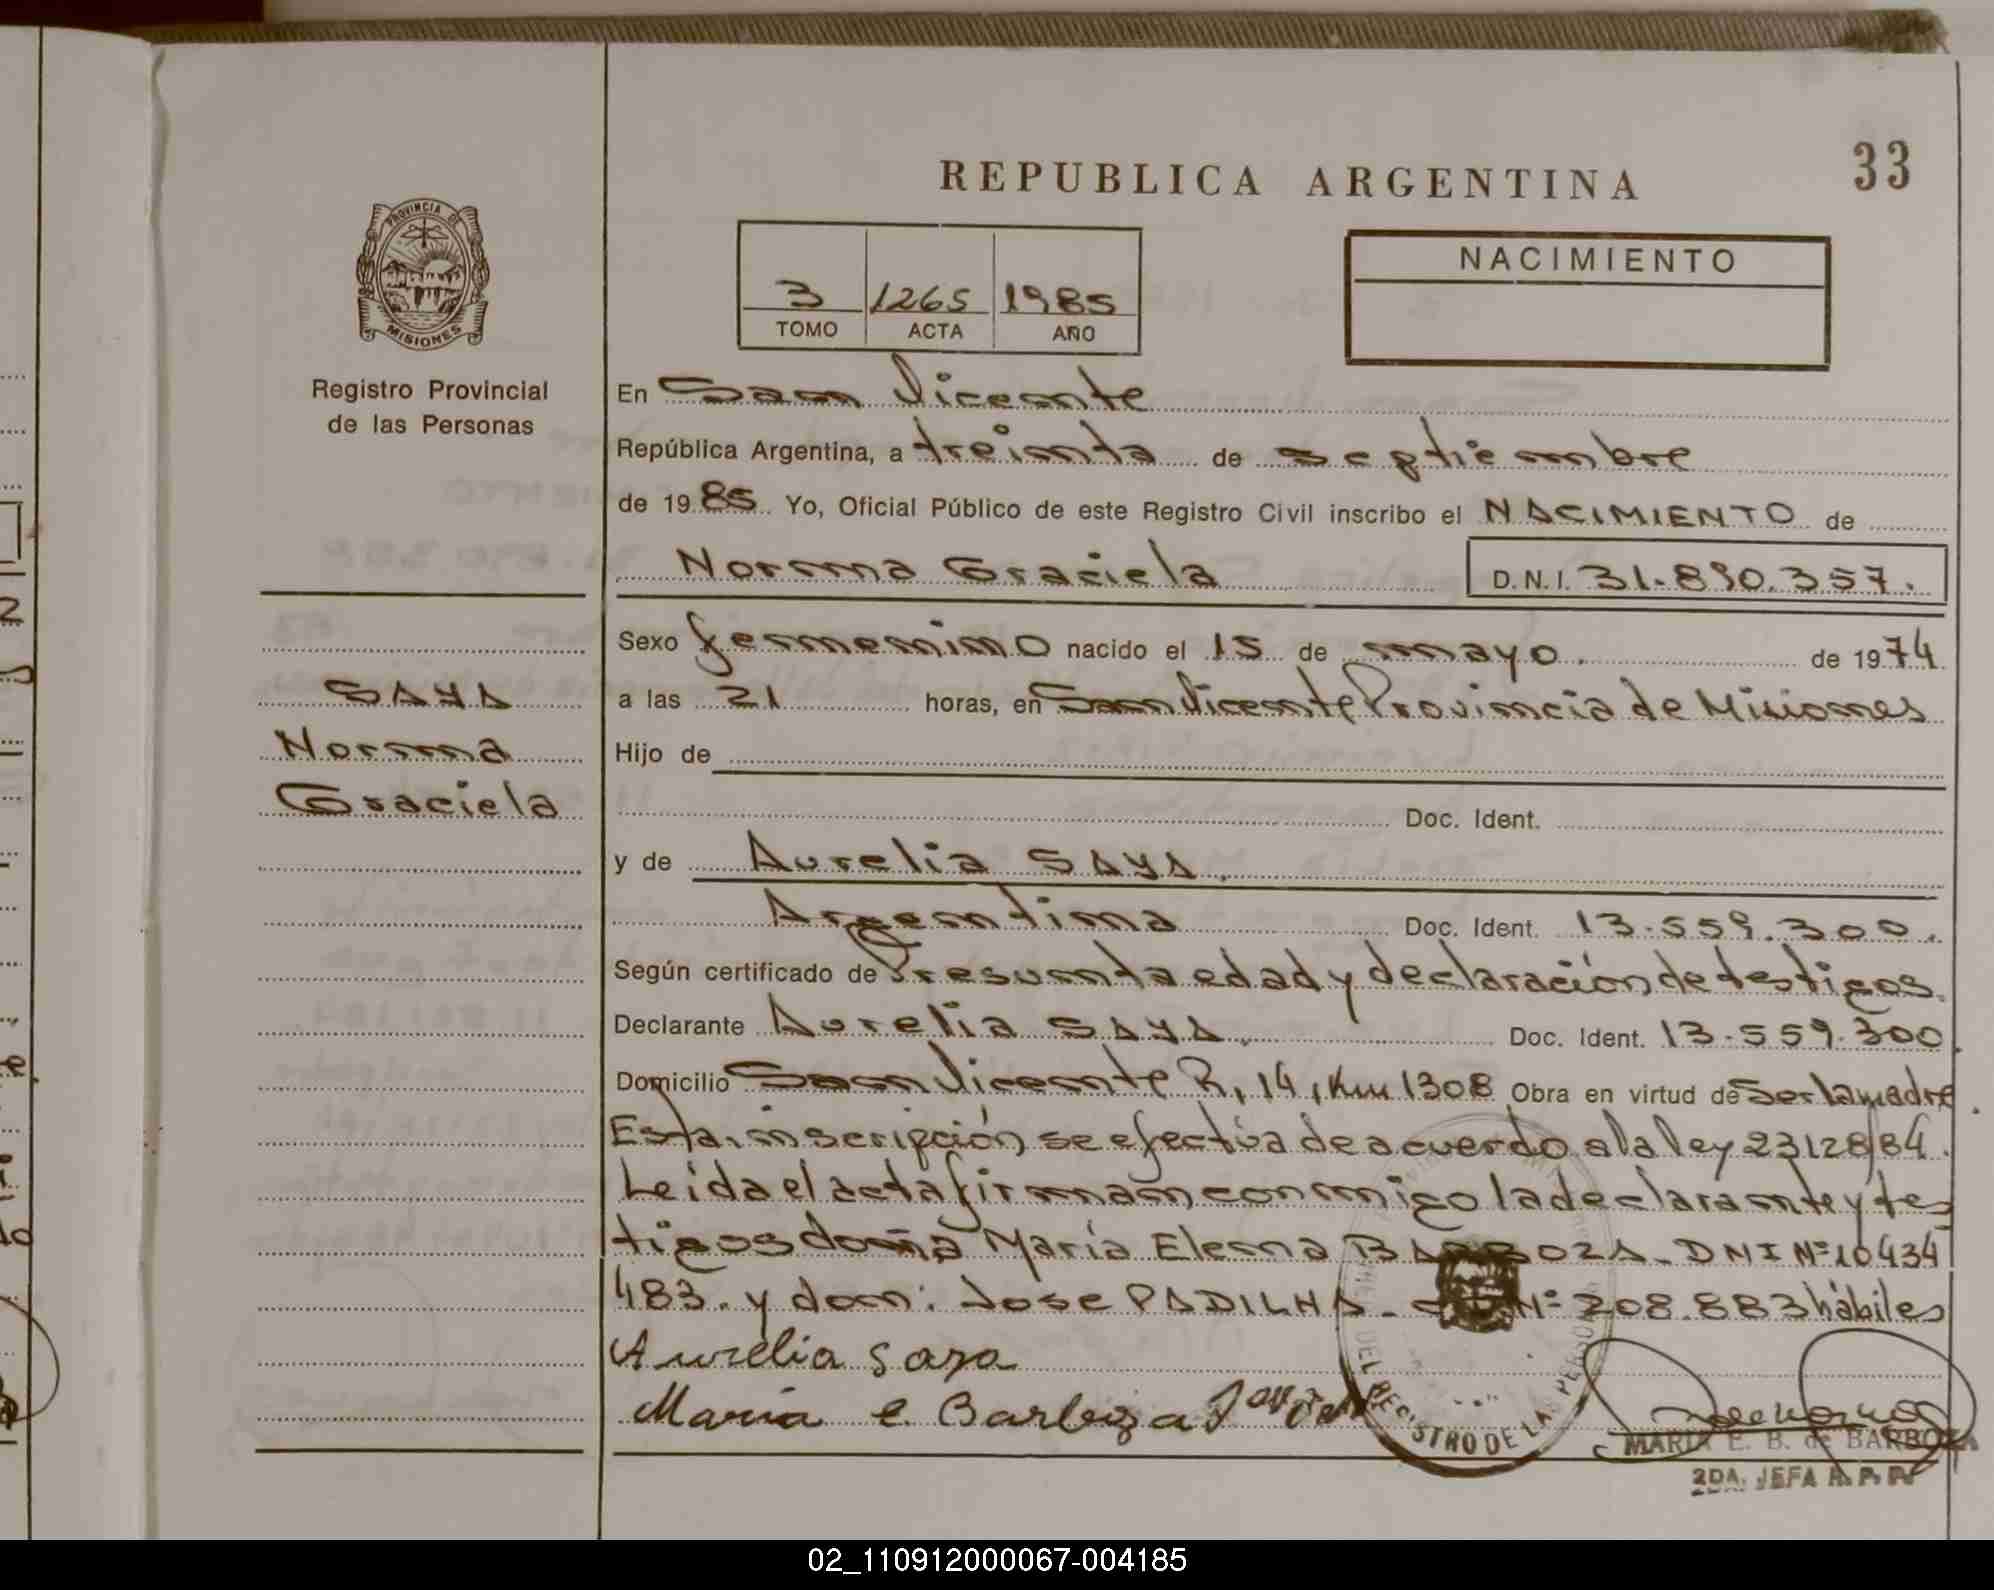 33
REPUBLICA ARGENTINA
PROVINCIA DE
MISIONES
Registro Provincial
de las Personas
3 1265 1985
TOMO ACTA AÑO
NACIMIENTO
En San Vicente
República Argentina, a treinta de septiembre
de 1985 Yo, Oficial Público de este Registro Civil inscribo el NACIMIENTO de
Norma Graciela D.N.I. 31.890.357.
Sexo femenino nacido el 15 de mayo. de 1974
a las 21 horas, en San Vicente Provincia de Misiones
Hijo de
Doc. Ident.
y de Aurelia SAYA.
Argentina Doc. Ident. 13.559.300.
Según certificado de Presunta edad y declaración de testigos.
Declarante Aurelia SAYA. Doc. Ident. 13.559.300
Domicilio San Vicente R, 14, Km 1308 Obra en virtud de Ser la madre
Esta inscripción se efectúa de acuerdo a la ley 23128/84.
Leída el acta firman conmigo la declarante y tes
tigos doña María Elena BARBOZA - DNI Nº 10434
483. y don: Jose PADILHA - Nº 208.883 hábiles
Aurelia Saya
Maria e. Barboza
SAYA
Norma
Graciela
DEL REGISTRO DE LAS PERSONAS
MARIA E. B. de BARBOZA
2DA. JEFA R. P. P.
02_110912000067-004185